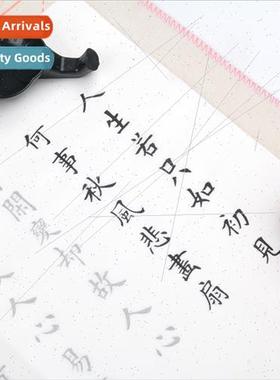 Arrivals
ty Goods
人生若只如初見
何事秋風悲畫扇
閑變却故人心
人心易